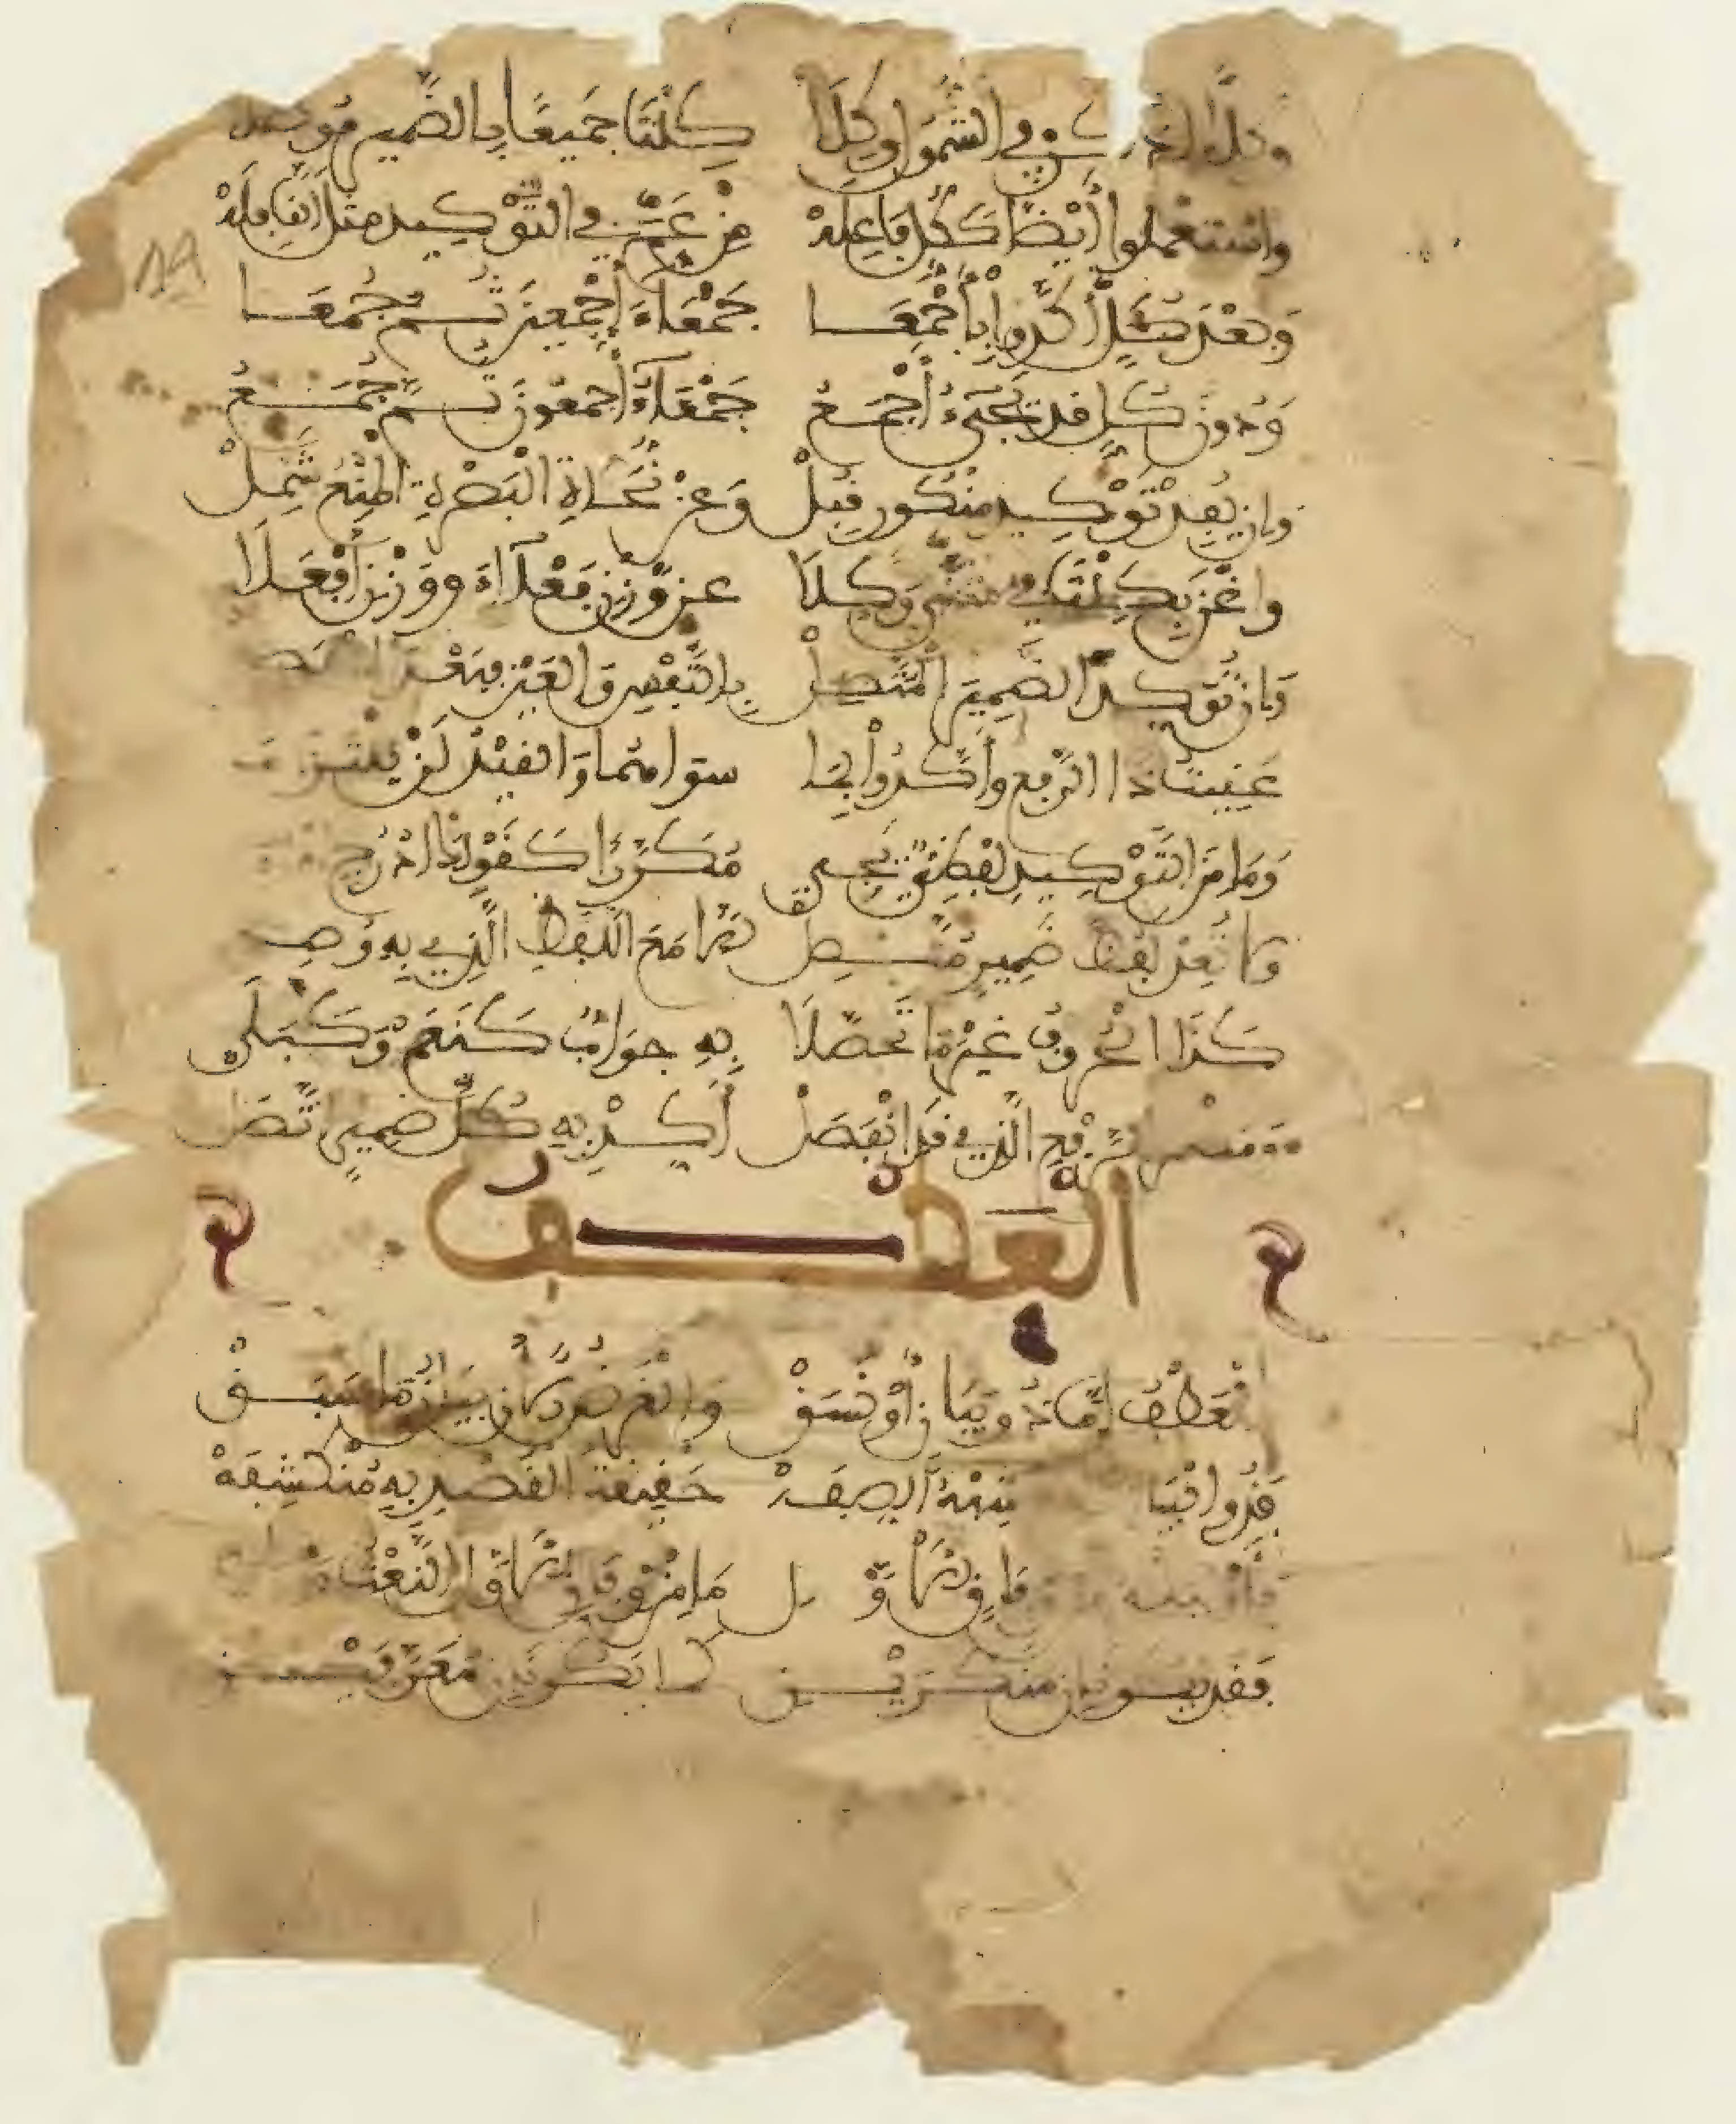 وكلا اذكر في الشمول وكلا كِلْتَا جَمِيعًا بِالضَّمِيرِ مُوصَلا
واسْتَعْمَلُوا أَيْضًا كَكُلٍّ فَاعِلَهْ مِنْ عَمَّ فِي التَّوْكِيدِ مِثْلَ النَّافِلَهْ
وَبَعْدَ كُلٍّ أَكَّدُوا بِأَجْمَعَا جَمْعَاءَ أَجْمَعِينَ ثُمَّ جُمَعَا
وَدُونَ كُلٍّ قَدْ يَجِيءُ أَجْمَعُ جَمْعَاءُ أَجْمَعُونَ ثُمَّ جُمَعُ
وَإن يُفِدْ تَوْكِيدُ مَنْكُورٍ قُبِلْ وَعَنْ نُحَاةِ الْبَصْرَةِ الْمَنْعُ شَمِلْ
وَاغْنَ بِكِلْتَا فِي مُثَنًّى وَكِلَا عَنْ وَزْنِ فَعْلَاءَ وَوَزْنِ أَفْعَلَا
وَإِن تُؤَكِّدِ الضَّمِيرَ الْمُتَّصِلْ بِالنَّفْسِ وَالْعَيْنِ فَبَعْدَ الْمُنفَصِلْ
عَنَيْتُ ذَا الرَّفْعِ وَأَكَّدُوا بِمَا سِوَاهُمَا وَالْقَيْدُ لَنْ يُلْتَزَمَا
وَمَا مِنَ التَّوْكِيدِ لَفْظِيٌّ يَجِي مُكَرَّرًا كَقَوْلِكَ ادْرُجِ
وَلَا تُعِدْ لَفْظَ ضَمِيرٍ مُتَّصِلْ إِلَّا مَعَ اللَّفْظِ الَّذِي بِهِ وُصِلْ
كَذَا الْحُرُوفُ غَيْرُ مَا تَحَصَّلَا بِهِ جَوَابٌ كَنَعَمْ وَكَبَلَى
وَمُضْمَرُ الرَّفْعِ الَّذِي قَدِ انْفَصَلْ أَكِّدْ بِهِ كُلَّ ضَمِيرٍ اتَّصَلْ
العَطْف
الْعَطْفُ إِمَّا ذُو بَيَانٍ أَوْ نَسَقْ وَالْغَرَضُ الْآنَ بَيَانُ مَا سَبَقْ
فَذُو الْبَيَا شِبْهُ الصِّفَهْ حَقِيقَةُ الْقَصْدِ بِهِ مُنْكَشِفَهْ
فَأَوْلِيَنْهُ وِفَاقِ الْأَوَّلِ مَا مِنْ وِفَاقِ الْأَوَّلِ النَّعْتُ وَلِي
فَقَدْ يَكُونَانِ مُنَكَّرَيْنِ كَمَا يَكُونَانِ مُعَرَّفَيْنِ